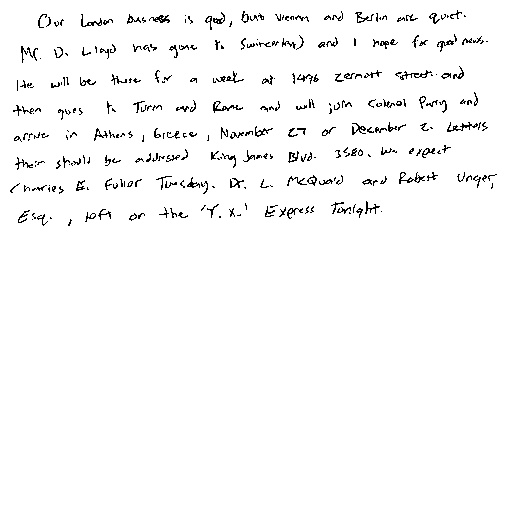 Our London business is good, but Vienna and Berlin are quiet.
Mr. D. Lloyd has gone to Switzerland and I hope for good news.
He will be there for a week at 1496 Zermott Street and
then goes to Turin and Rome and will join Colonel Parry and
arrive in Athens, Greece, November 27 or December 2. Letters
there should be addressed King James Blvd. 3580. We expect
Charles E. Fuller Tuesday. Dr. L. McQuaid and Robert Unger,
Esq., left on the 'Y.X.' Express Tonight.